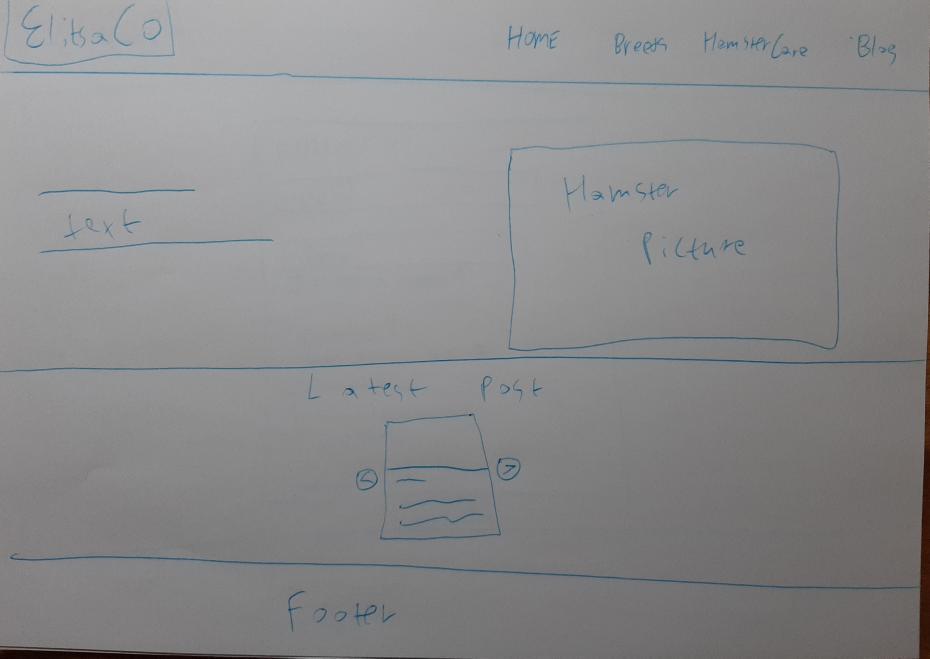 ElitsaCo
HOME Breeds HamsterCare Blog
text
Hamster
Picture
Latest Post
< >
Footer